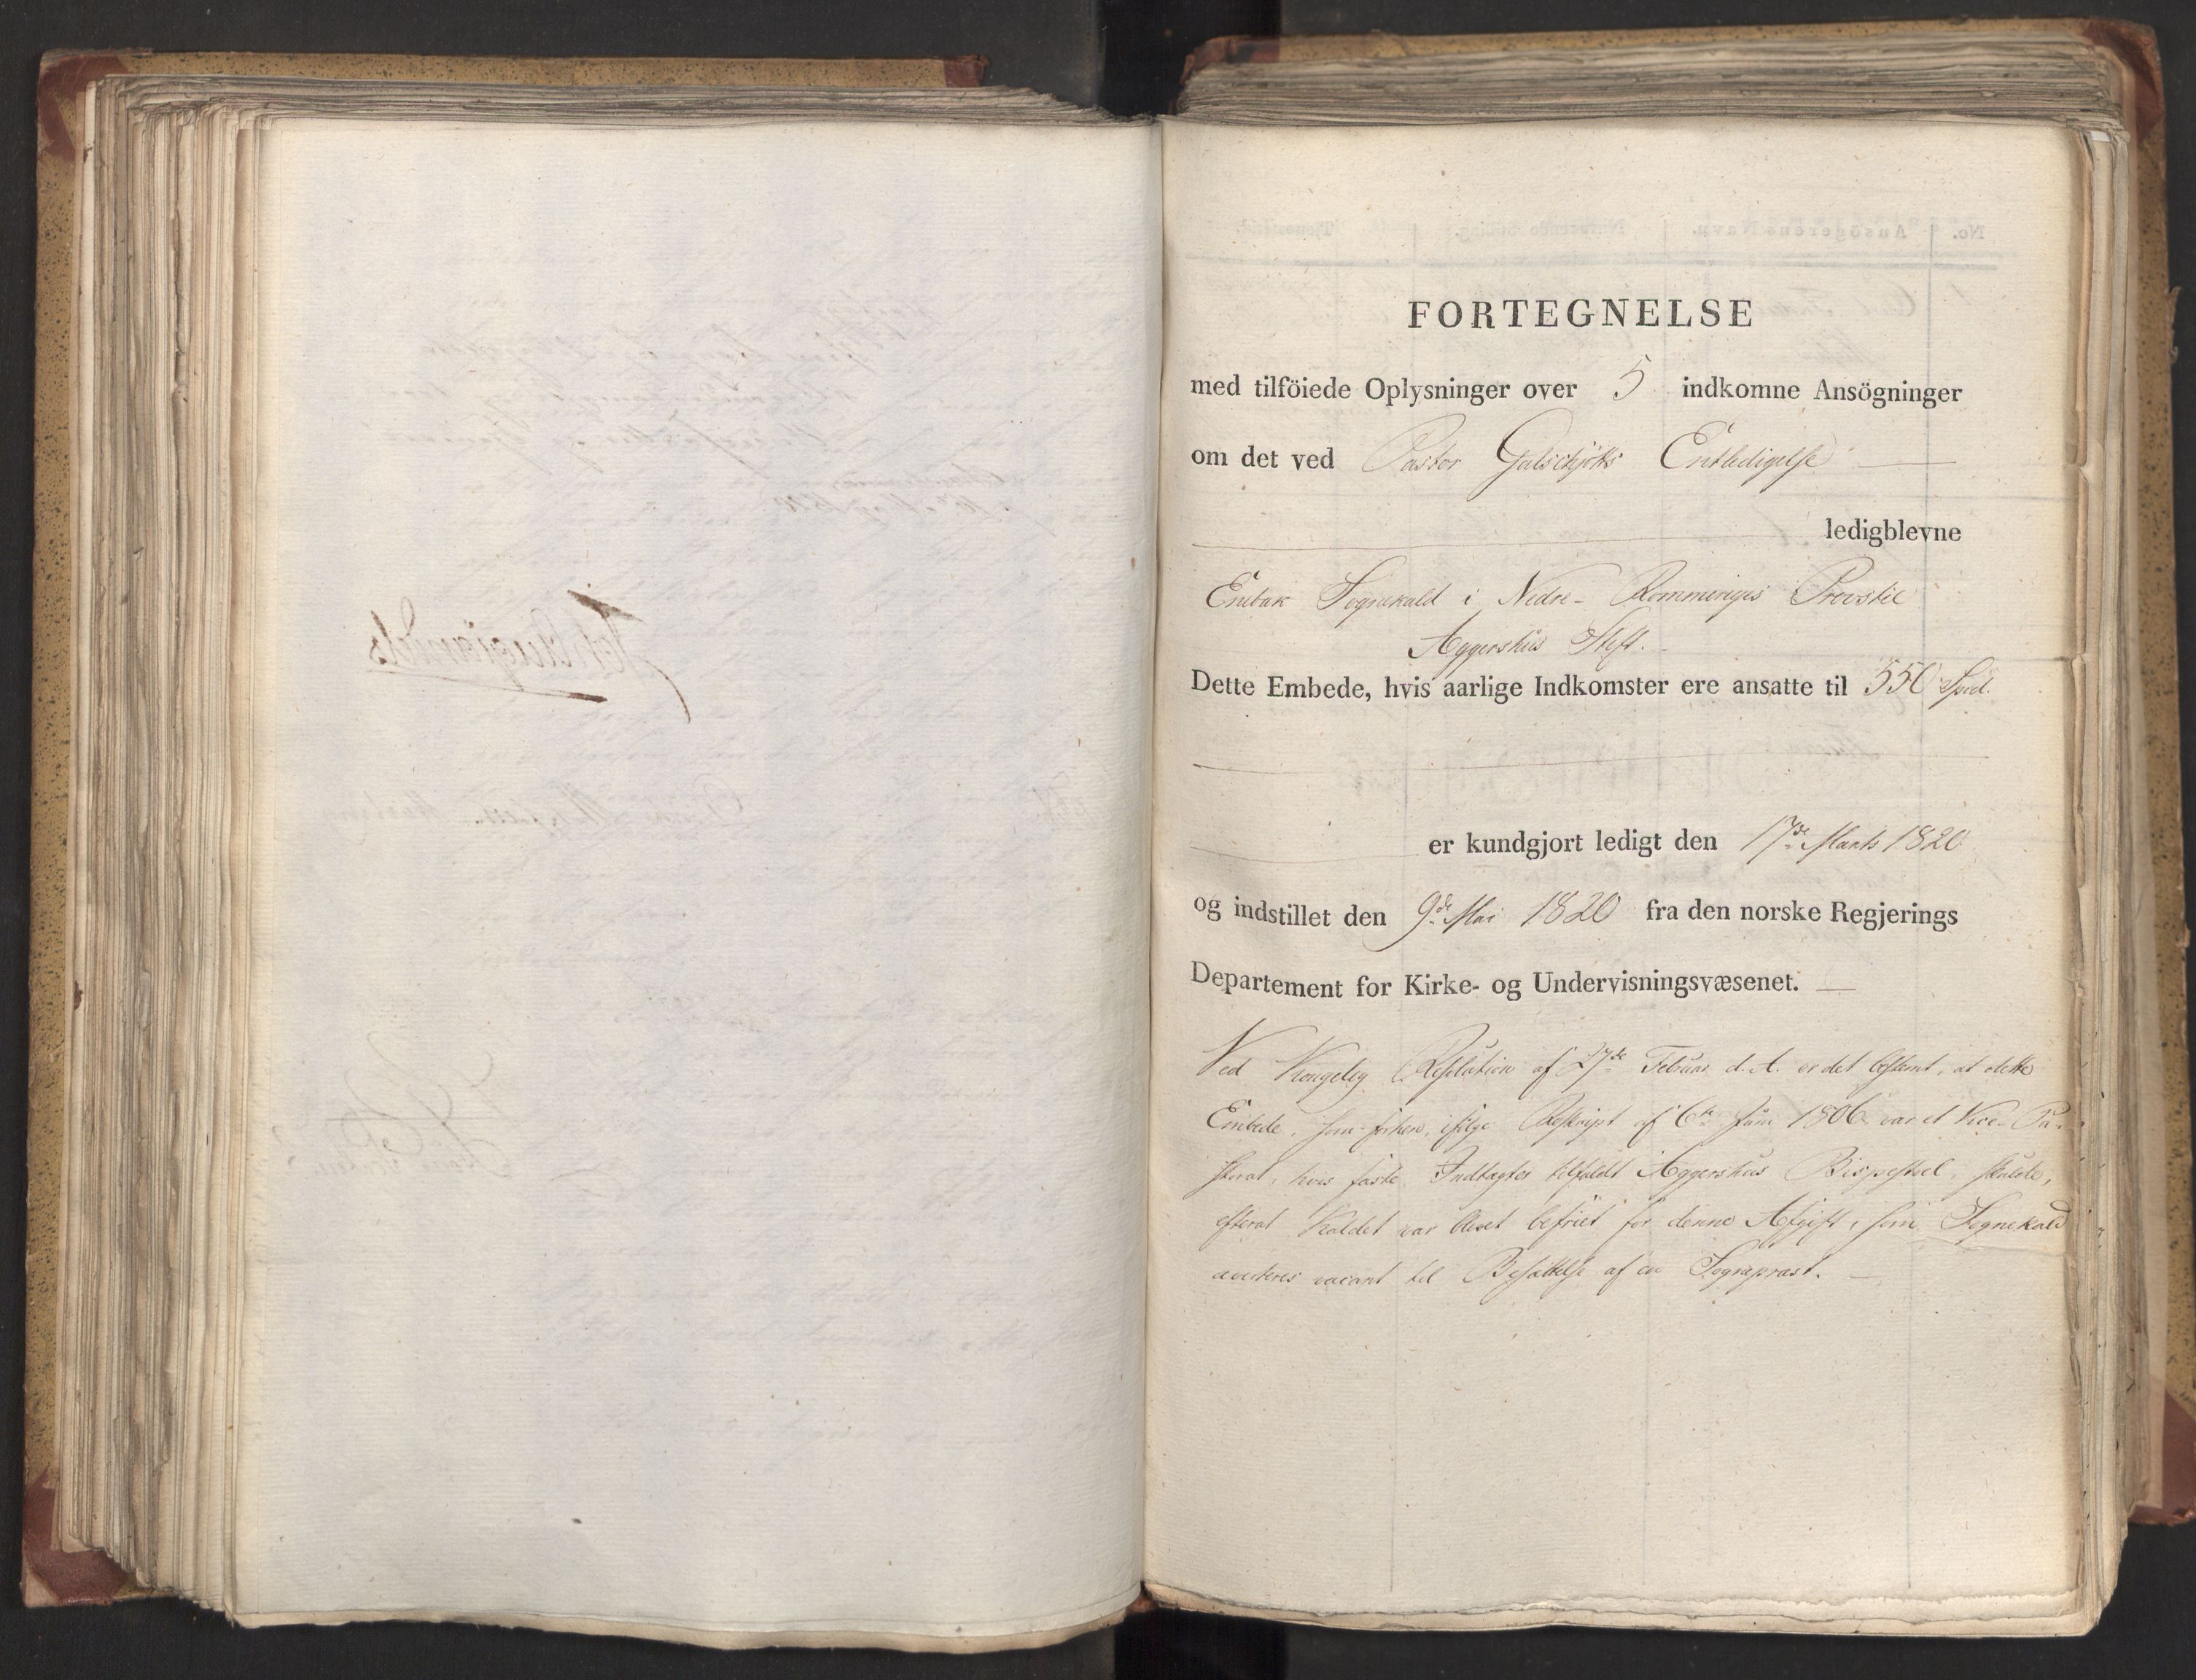 FORTEGNELSE
med tilföiede Oplysninger over 5 indkomne Ansögninger
om det ved Pastor Galschjöts Entledigelse
ledigblevne
Enebak Sognekald i Nedre-Rommeriges Provstie
Aggershus Stift.
Dette Embede, hvis aarlige Indkomster ere ansatte til 550 Spd.
er kundgjort ledigt den 17de Marts 1820
og indstillet den 9de Mai 1820 fra den norske Regjerings
Departement for Kirke- og Undervisningsvæsenet.
Ved Kongelig Resolution af 27de Februar d. A. er det bestemt, at dette
Embede, som forhen, ifølge Reskript af 6te Juni 1806 var et Vice-Pa-
storat, hvis faste Indtægter tilfaldt Aggershus Bispestoel, skulde,
efterat Kaldet var blevet befriet for denne Afgift, som Sognekald
averteres vacant til Besættelse af en Sognepræst.